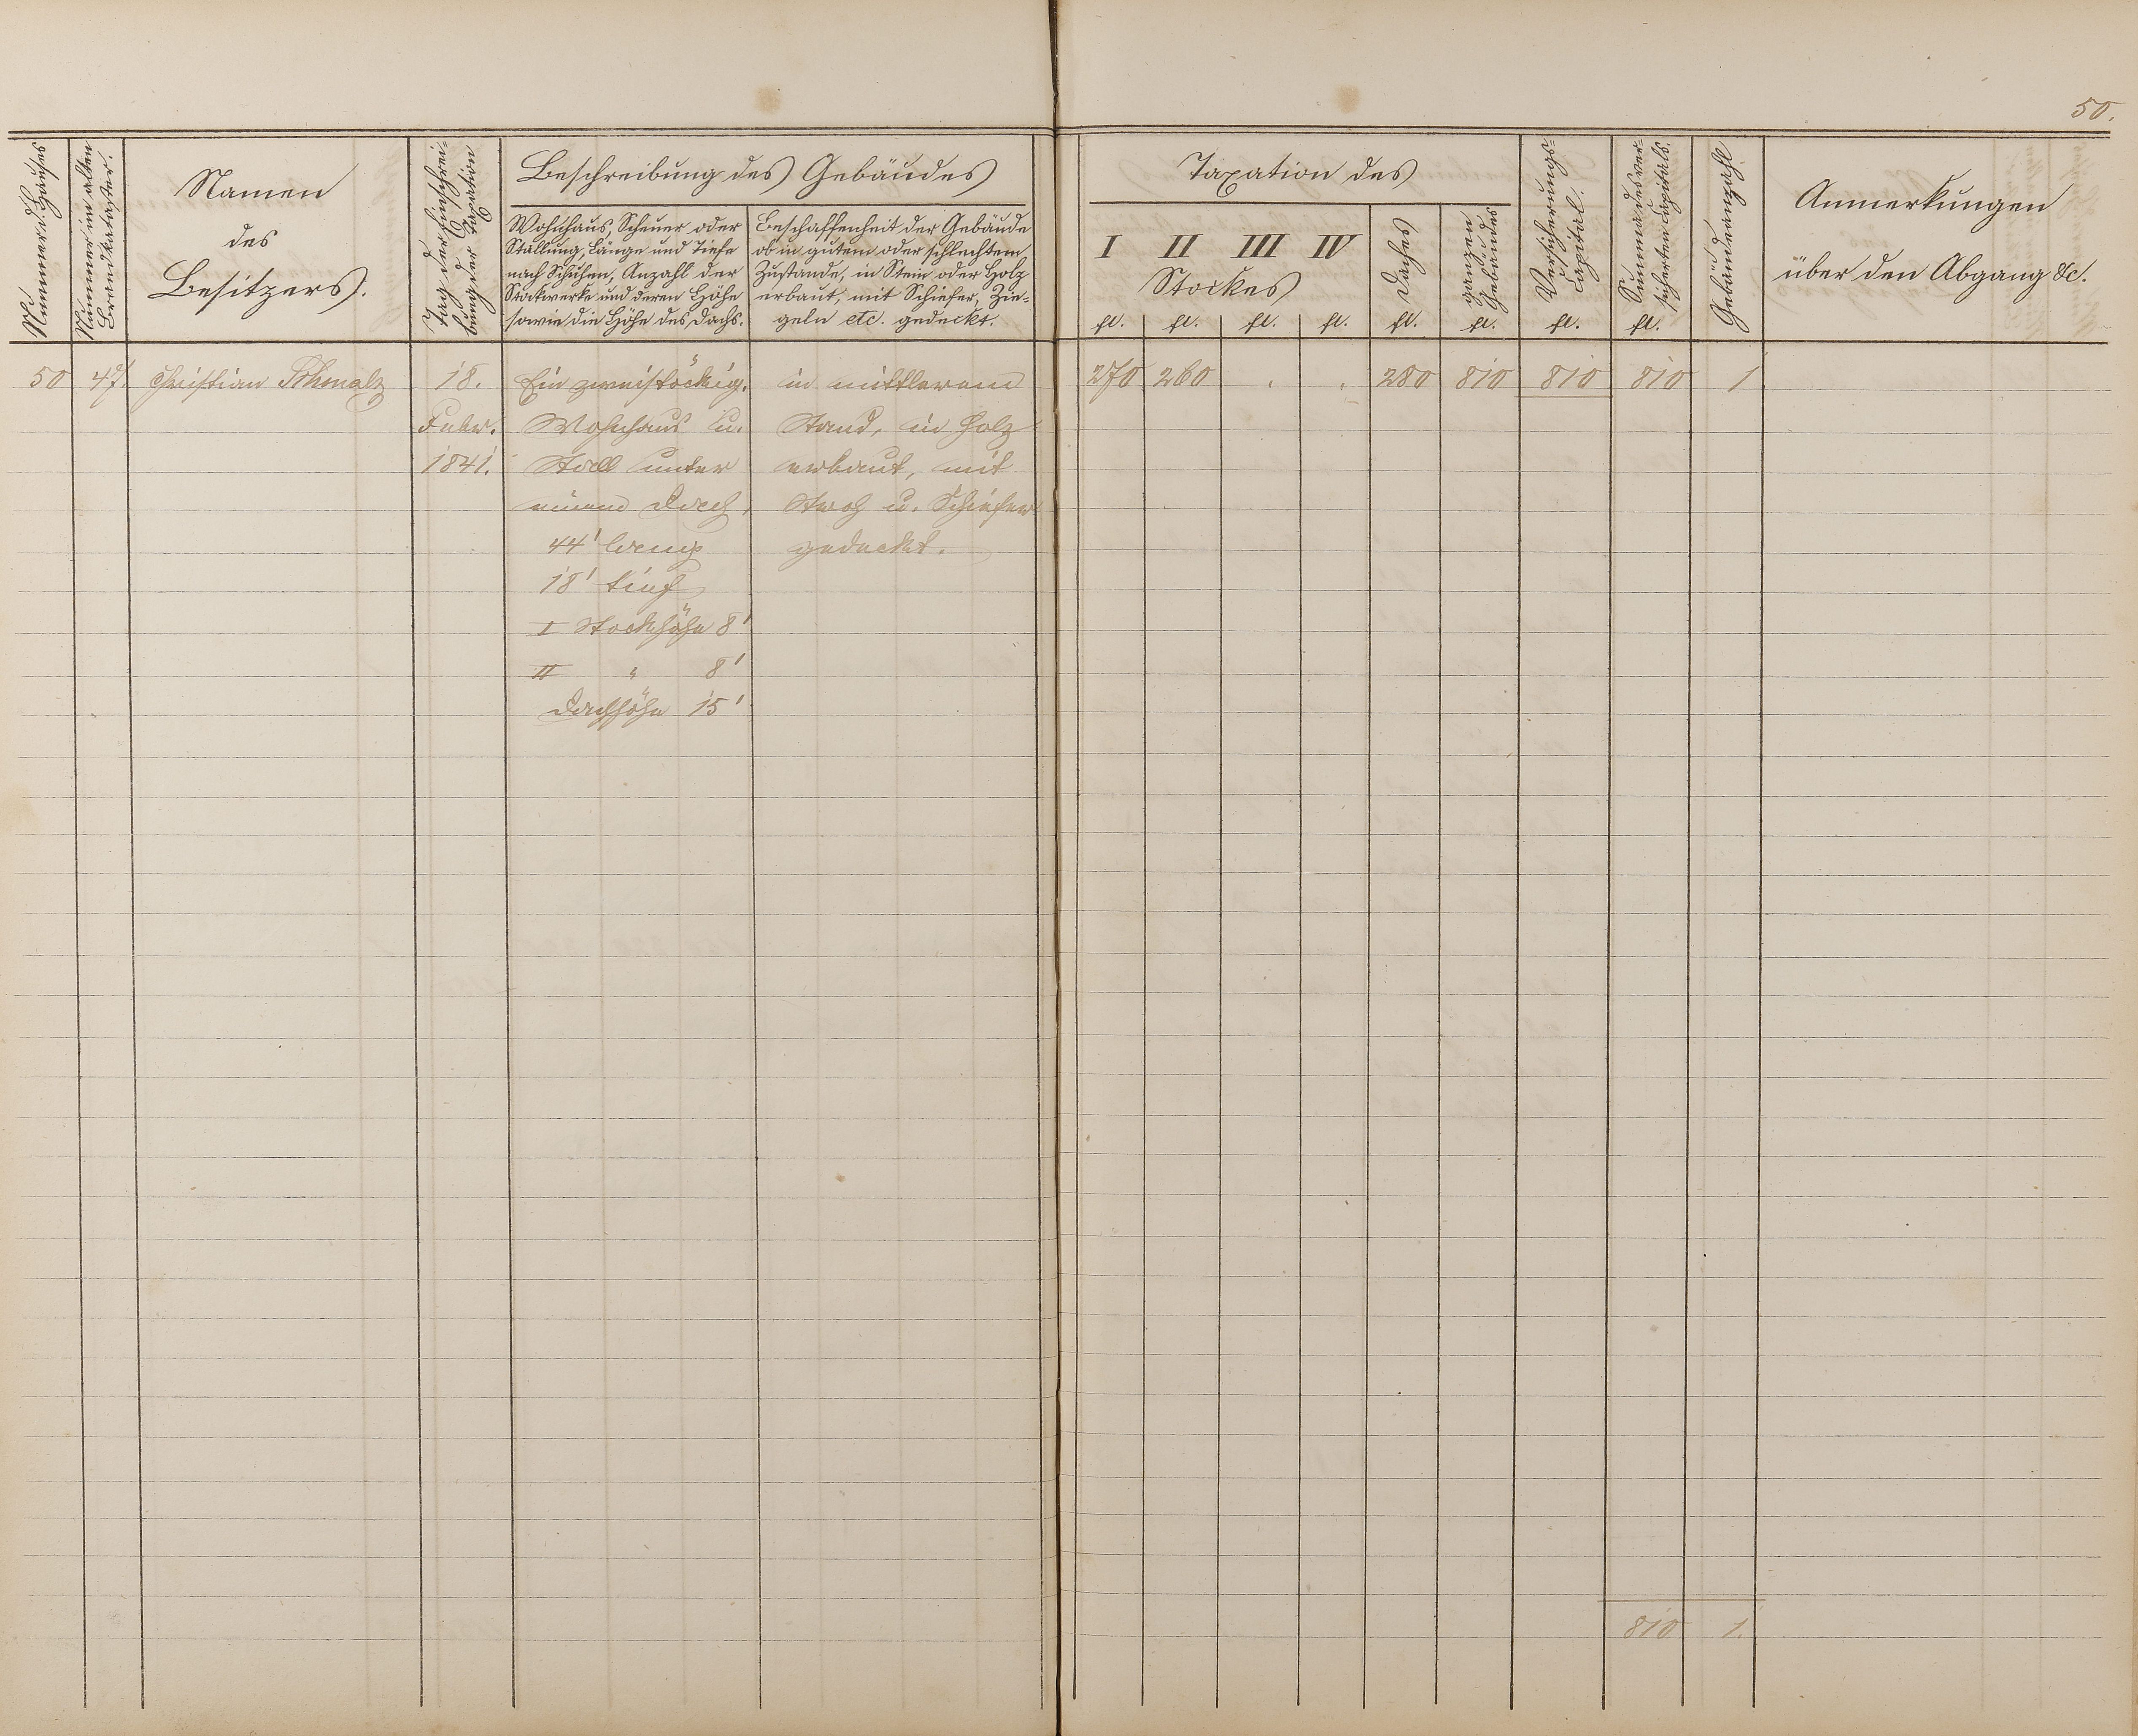 50.
Nummer d. Hauses
Nummer im alten
Brandkataster.
Namen
des
Besitzers.
Tag der Einschrei-
bung der Taxation
Beschreibung des Gebäudes
Wohnhaus, Scheuer oder
Stallung, Länge und Tiefe
nach Schuhen, Anzahl der
Stockwerke und deren Höhe
sowie die Höhe des Dachs.
Beschaffenheit der Gebäude
ob in gutem oder schlechtem
Zustande, in Stein oder Holz
erbaut, mit Schiefer, Zie-
geln etc. gedeckt.
Taxation des
I II III IV
Stockes
Daches
ganzen
Gebäudes
Versicherungs-
Capital.
Summa des ver-
sicherten Capitals.
Gebäudeanzahl
Anmerkungen
über den Abgang &c.
fl. fl. fl. fl. fl. fl. fl. fl.
50 47. Christian Schmalz 18. Ein zweistöckig. in mittlerem 270 260 . . 280 810 810 810 1
Febr. Wohnhaus u. Stand, in Holz
1841. Stall unter erbaut, mit
einem Dach, Stroh u. Schiefer
44' lang gedeckt.
18' tief
I Stockhöhe 8'
II " 8'
Dachhöhe 15'
810 1.